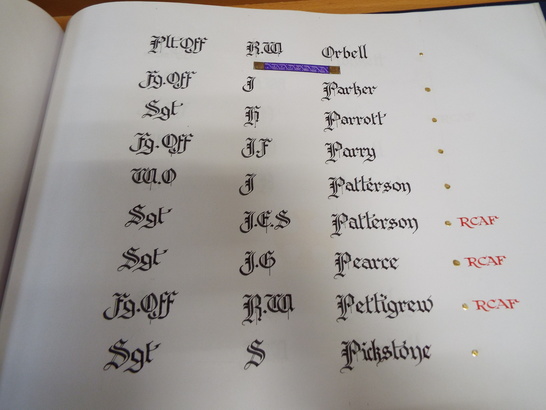 Plt.Off R.W Orbell
Fg.Off J Parker
Sgt H Parrott
Fg.Off J.F Parry
W.O J Patterson
Sgt J.E.S Patterson RCAF
Sgt J.G Pearce RCAF
Fg.Off R.W Pettigrew RCAF
Sgt S Pickstone